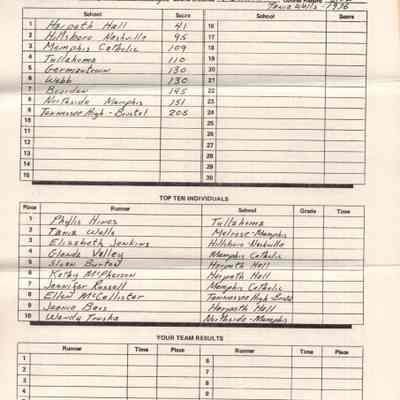 Tania Wells - 1976
School Score School Score
1 Harpeth Hall 41 16
2 Hillsboro Nashville 95 17
3 Memphis Catholic 109 18
4 Tullahoma 110 19
5 Germantown 130 20
6 Webb 130 21
7 Bearden 145 22
8 Northside Memphis 151 23
9 Tennessee High - Bristol 205 24
10 25
11 26
12 27
13 28
14 29
15 30
TOP TEN INDIVIDUALS
Place Runner School Grade Time
1 Phyllis Hines Tullahoma
2 Tania Wells Melrose-Memphis
3 Elizabeth Jenkins Hillsboro-Nashville
4 Glenda Valley Memphis Catholic
5 Sloan Burton Harpeth Hall
6 Kathy McPherson Harpeth Hall
7 Jennifer Russell Memphis Catholic
8 Ellen McCallister Tennessee High-Bristol
9 Jeanie Bass Harpeth Hall
10 Wendy Truska Northside-Memphis
YOUR TEAM RESULTS
Runner Time Place Runner Time Place
1 6
2 7
3 8
4 9